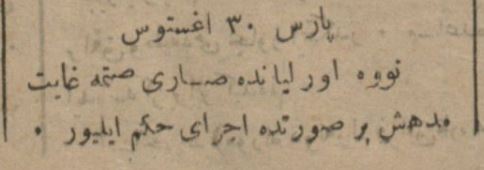 پارس ٣٠ اغستوس
نووه اورلیانده صاری صتمه غایت
مدهش بر صورتده اجرای حکم ایلیور .